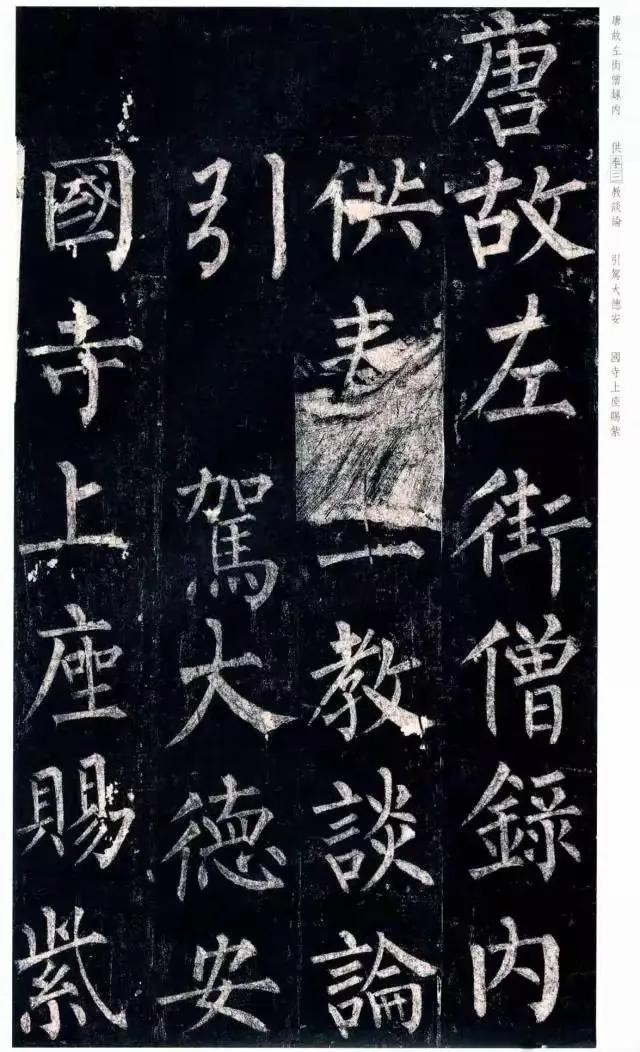 唐故左街僧録内
供奉三教談論
引駕大德安
國寺上座賜紫
唐故左街僧録内 供奉三教談論 引駕大德安 國寺上座賜紫